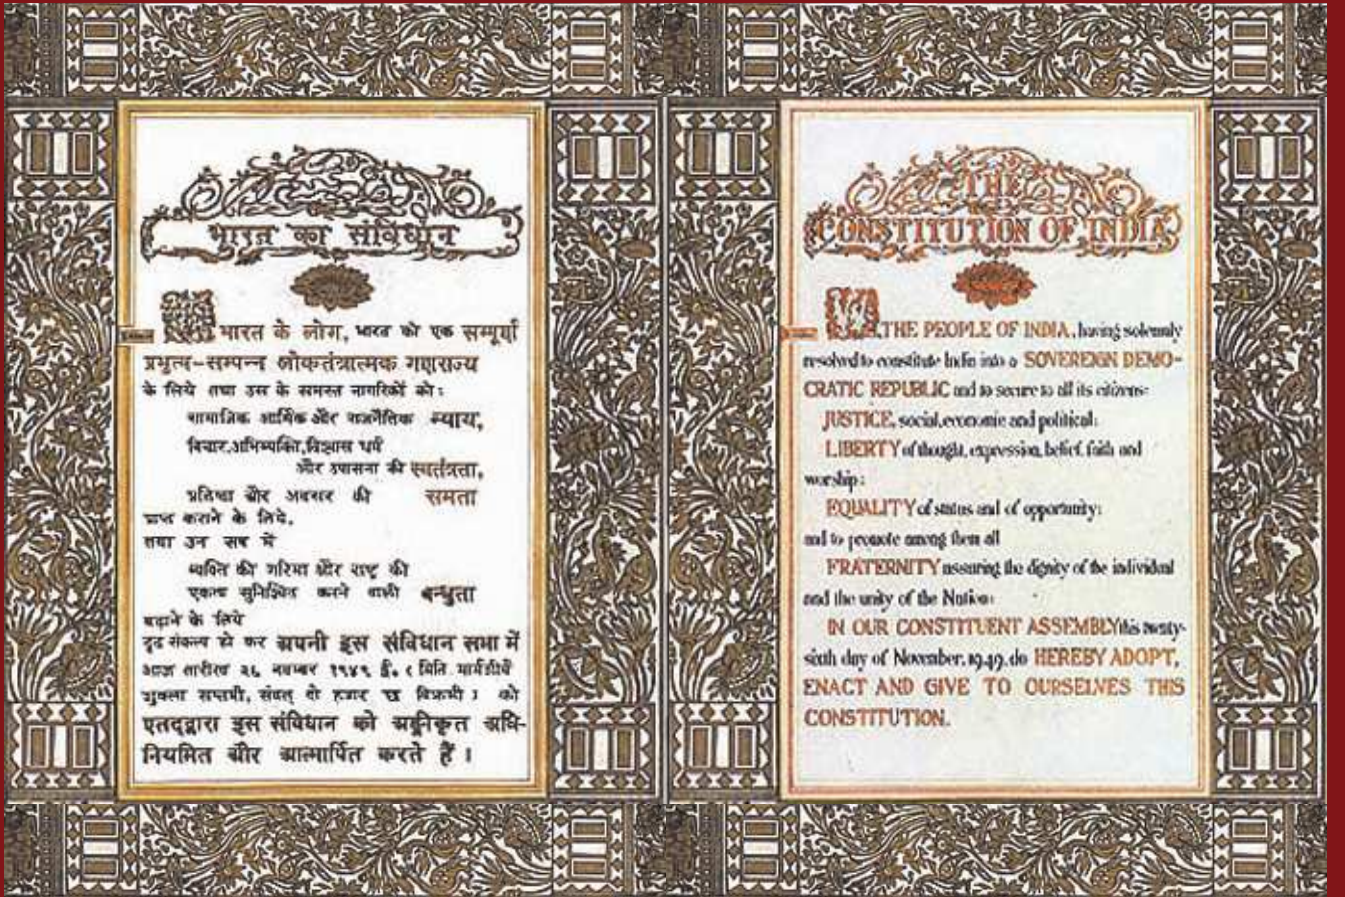 भारत का संविधान
भारत के लोग, भारत को एक सम्पूर्ण
प्रभुत्व-सम्पन्न लोकतंत्रात्मक गणराज्य
के लिये तथा उस के समस्त नागरिकों को:
सामाजिक आर्थिक और राजनैतिक न्याय,
विचार,अभिव्यक्ति,विश्वास धर्म
और उपासना की स्वतंत्रता,
प्रतिष्ठा और अवसर की समता
प्राप्त कराने के लिये,
तथा उन सब में
व्यक्ति की गरिमा और राष्ट्र की
एकता सुनिश्चित करने वाली बन्धुता
बढ़ाने के लिये
दृढ़ संकल्प हो कर अपनी इस संविधान सभा में
आज तारीख २६ नवम्बर १९४९ ई॰ (मिति मार्गशीर्ष
शुक्ला सप्तमी, संवत् दो हजार छ विक्रमी) को
एतद्द्वारा इस संविधान को अङ्गीकृत अधि-
नियमित और आत्मार्पित करते हैं।
THE
CONSTITUTION OF INDIA
WE, THE PEOPLE OF INDIA, having solemnly
resolved to constitute India into a SOVEREIGN DEMO-
CRATIC REPUBLIC and to secure to all its citizens:
JUSTICE, social, economic and political;
LIBERTY of thought, expression, belief, faith and
worship;
EQUALITY of status and of opportunity;
and to promote among them all
FRATERNITY assuring the dignity of the individual
and the unity of the Nation;
IN OUR CONSTITUENT ASSEMBLY this twenty-
sixth day of November, 1949, do HEREBY ADOPT,
ENACT AND GIVE TO OURSELVES THIS
CONSTITUTION.